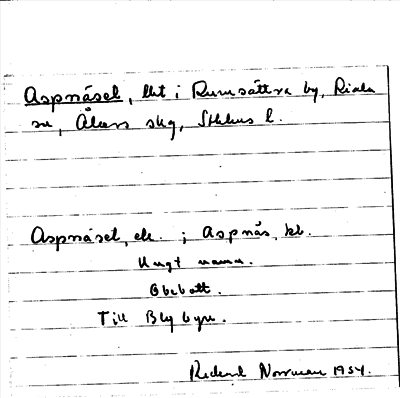 Aspnäset, lht i Rumsättra by, Riala
sn, Åkers skg, Sthlms l.
Aspnäset, ek. ; Aspnäs, kl.
Ungt namn.
Obebott.
Till Blybyn.
Rickard Norrman 1954.